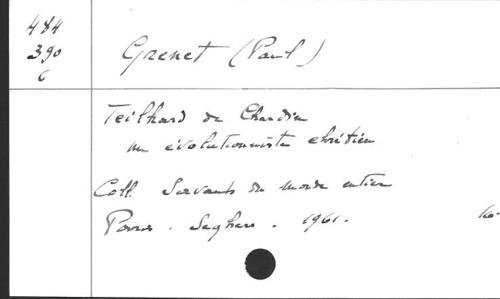 484
390
6
Grenet (Paul)
Teilhard de Chardin
un évolutionniste chrétien
Coll. Savants du monde entier
Paris. Seghers. 1961. 16.